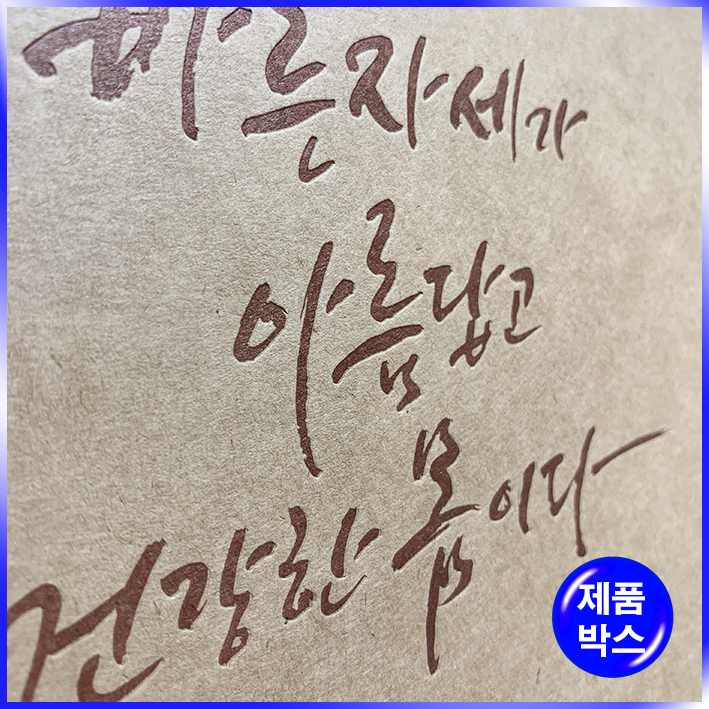 바른자세가
아름답고
건강한 몸이다
제품
박스